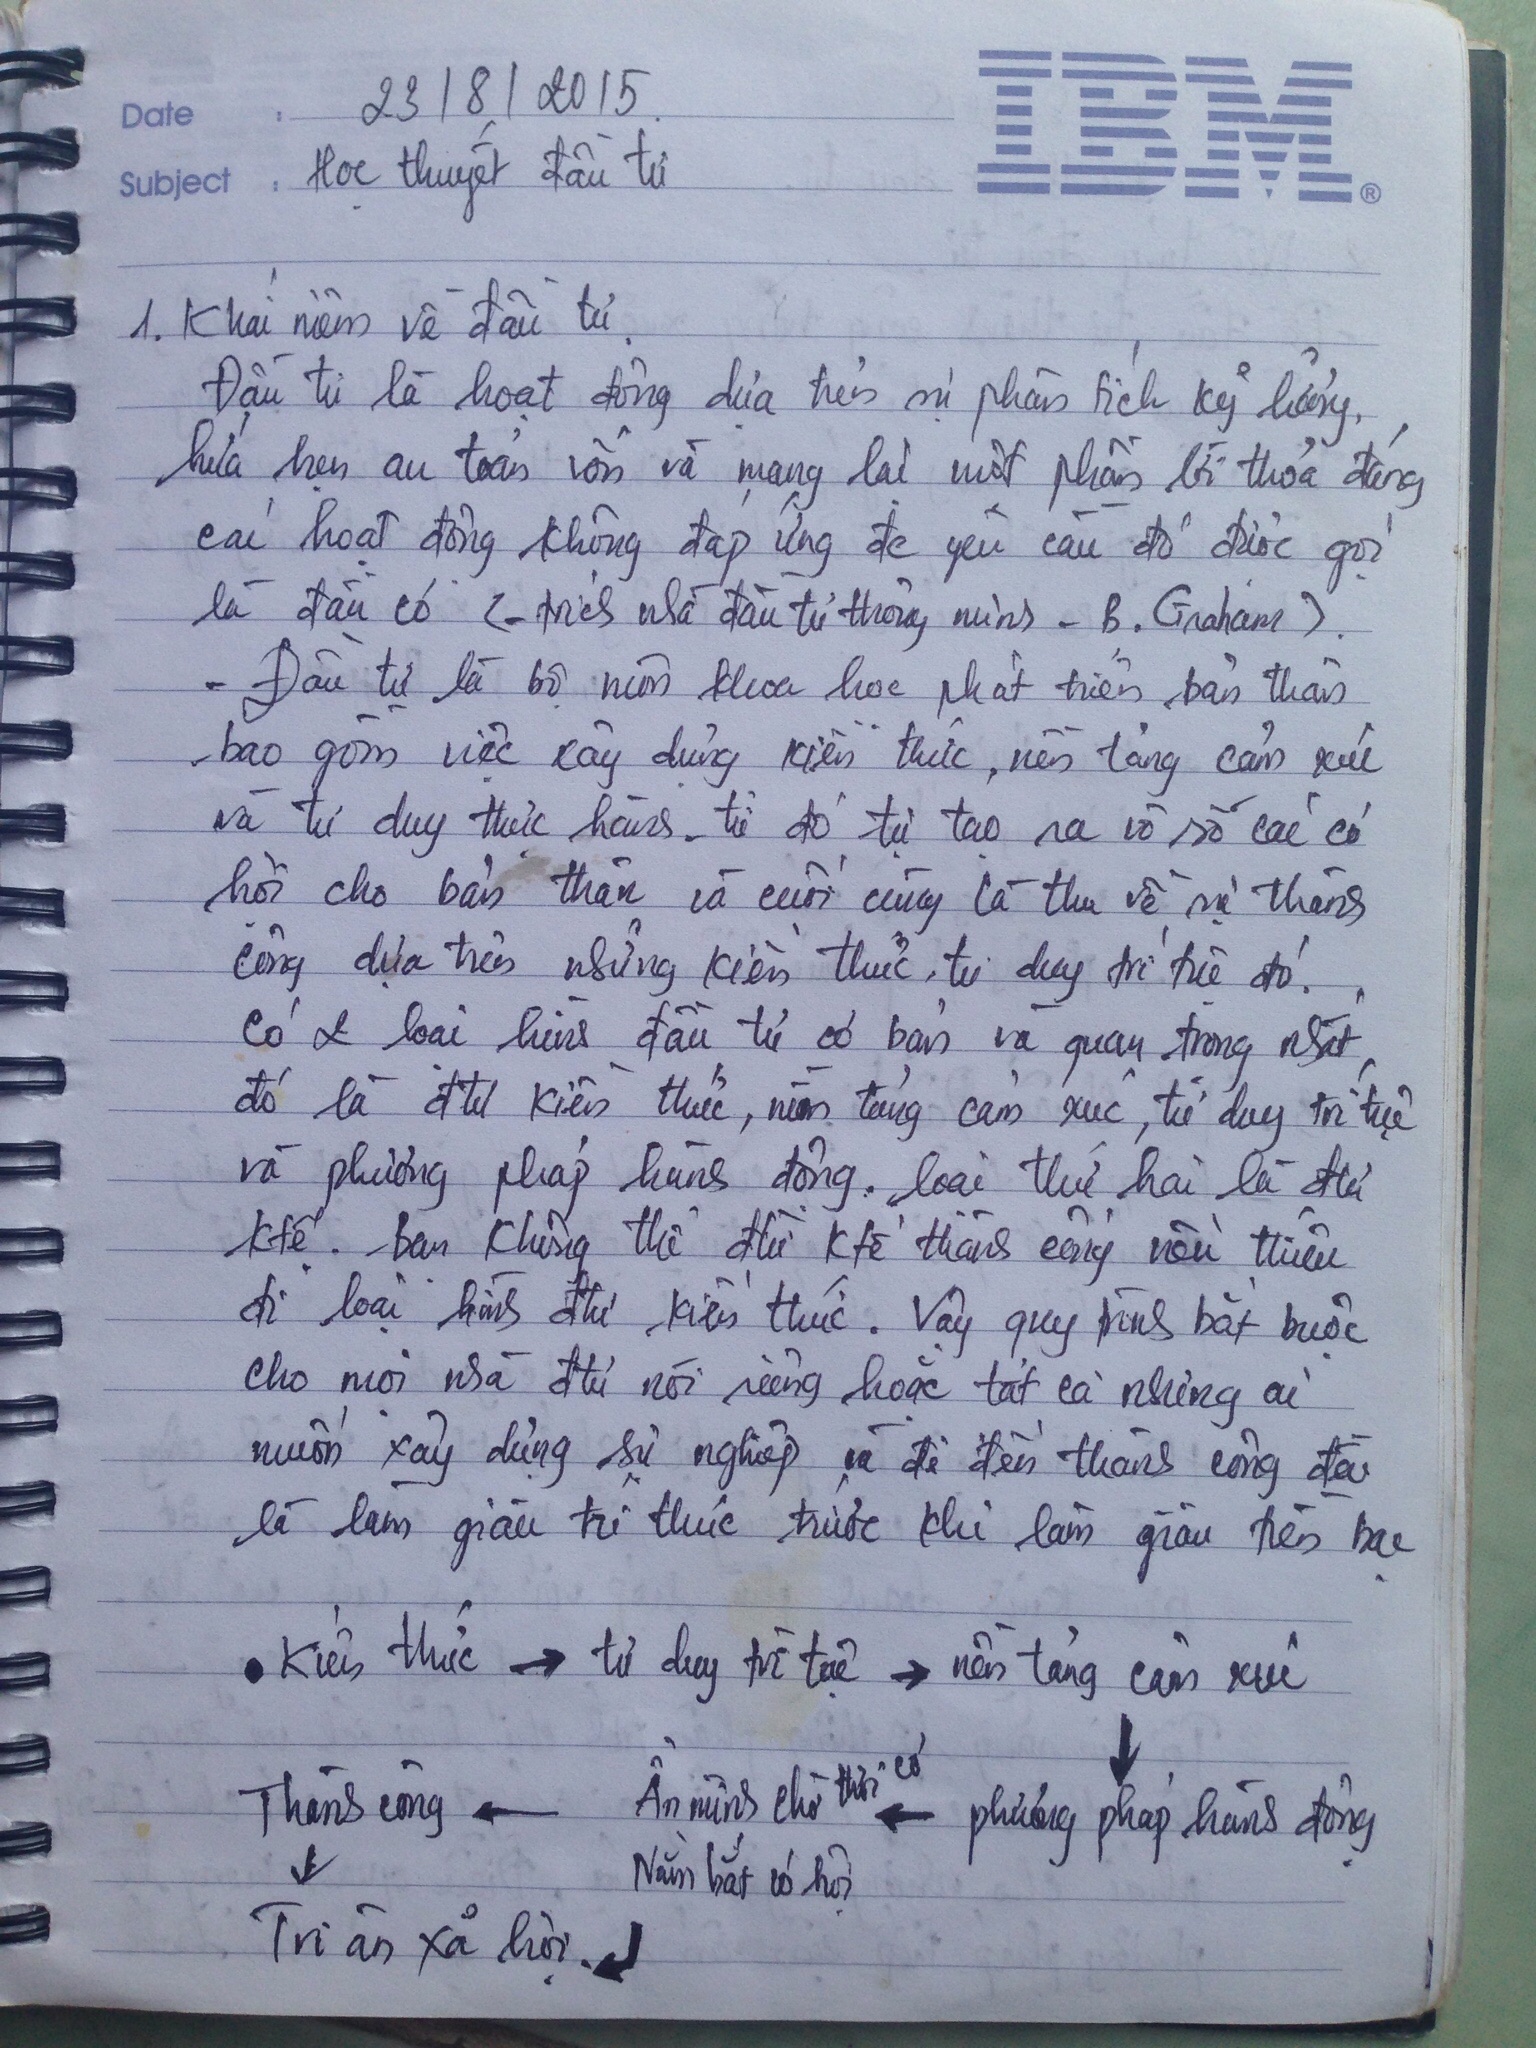 Date : 23/8/2015.
IBM®
Subject : Học thuyết đầu tư
1. Khái niệm về đầu tư.
Đầu tư là hoạt động dựa trên sự phân tích kỹ lưỡng,
hứa hẹn an toàn vốn và mang lại một phần lời thỏa đáng
các hoạt động không đáp ứng đc yêu cầu đó được gọi
là đầu cơ (- trích nhà đầu tư thông minh - B. Graham).
- Đầu tư là bộ môn khoa học phát triển bản thân
bao gồm việc xây dựng kiến thức, nền tảng cảm xúc
và tư duy thực hành - từ đó tự tạo ra vô số các cơ
hội cho bản thân và cuối cùng là thu về sự thành
công dựa trên những kiến thức, tư duy trí tuệ đó.
Có 2 loại hình đầu tư cơ bản và quan trọng nhất,
đó là đtư kiến thức, nền tảng cảm xúc, tư duy trí tuệ
và phương pháp hành động. loại thứ hai là đtư
ktế. bạn không thể đtư ktế thành công nếu thiếu
đi loại hình đtư kiến thức. Vậy quy trình bắt buộc
cho mọi nhà đtư nói riêng hoặc tất cả những ai
muốn xây dựng sự nghiệp và đi đến thành công đều
là làm giàu tri thức trước khi làm giàu tiền bạc
• Kiến thức → tư duy trí tuệ → nền tảng cảm xúc
↓
Thành công ← Ẩn mình chờ thời cơ ← phương pháp hành động
↓ Nắm bắt cơ hội
Tri ân xã hội.